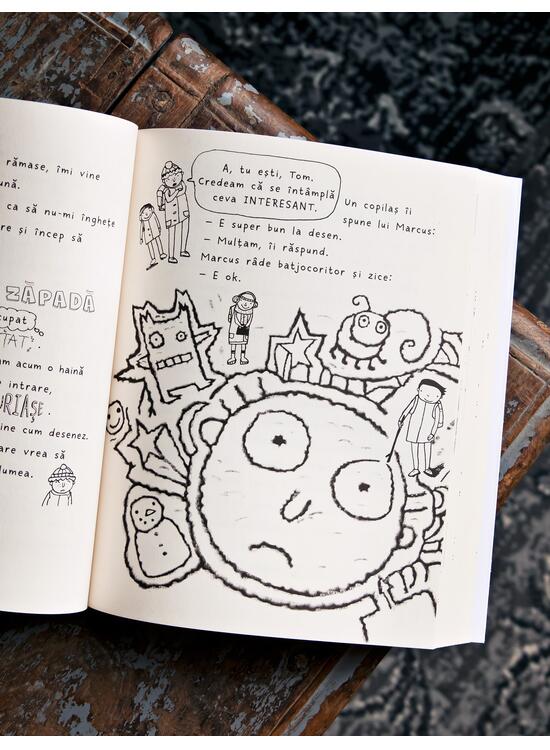 rămase, îmi vine
ună.
ca să nu-mi înghețe
re și încep să
ZĂPADĂ
cupat
TAT
am acum o haină
intrare,
RIAȘE.
ine cum desenez.
are vrea să
lumea.
A, tu ești, Tom.
Credeam că se întâmplă
ceva INTERESANT.
Un copilaș îi
spune lui Marcus:
– E super bun la desen.
– Mulțam, îi răspund.
Marcus râde batjocoritor și zice:
– E ok.